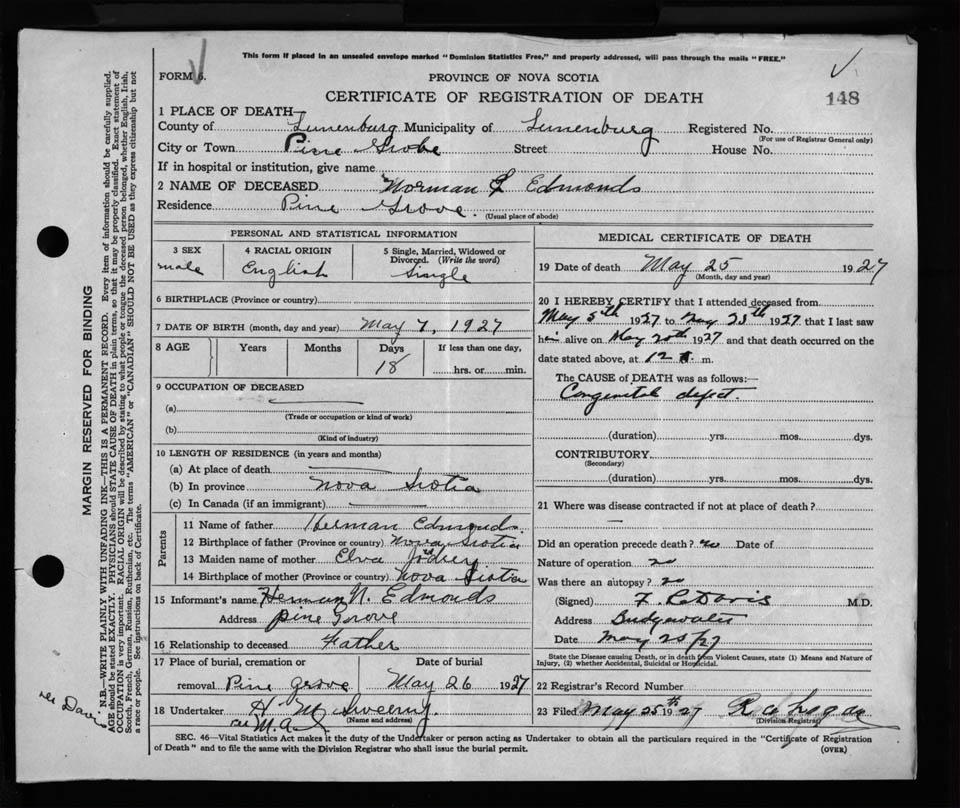 This form if placed in an unsealed envelope marked "Dominion Statistics Free," and properly addressed, will pass through the mails "FREE."
FORM 6.
PROVINCE OF NOVA SCOTIA
CERTIFICATE OF REGISTRATION OF DEATH
148
1 PLACE OF DEATH
County of Lunenburg Municipality of Lunenburg Registered No.
(For use of Registrar General only)
City or Town Pine Grove Street House No.
If in hospital or institution, give name
2 NAME OF DECEASED Norman Edmonds
Residence Pine Grove. (Usual place of abode)
PERSONAL AND STATISTICAL INFORMATION
3 SEX male
4 RACIAL ORIGIN English
5 Single, Married, Widowed or Divorced. (Write the word) Single
6 BIRTHPLACE (Province or country)
7 DATE OF BIRTH (month, day and year) May 7, 1927
8 AGE Years Months Days 18 If less than one day, hrs. or min.
9 OCCUPATION OF DECEASED
(a)
(Trade or occupation or kind of work)
(b)
(Kind of industry)
10 LENGTH OF RESIDENCE (in years and months)
(a) At place of death
(b) In province Nova Scotia
(c) In Canada (if an immigrant)
Parents
11 Name of father Herman Edmonds.
12 Birthplace of father (Province or country) Nova Scotia
13 Maiden name of mother Elva
14 Birthplace of mother (Province or country) Nova Scotia
15 Informant's name Herman N. Edmonds
Address Pine Grove
16 Relationship to deceased Father
17 Place of burial, cremation or removal Pine Grove Date of burial May 26 1927
18 Undertaker H M Sweeny.
(Name and address)
MEDICAL CERTIFICATE OF DEATH
19 Date of death May 25 1927
(Month, day and year)
20 I HEREBY CERTIFY that I attended deceased from
May 5th 1927 to May 25th 1927 that I last saw
him alive on May 20th 1927 and that death occurred on the
date stated above, at 12 m.
The CAUSE of DEATH was as follows:—
Congenital defect.
(duration) yrs. mos. dys.
CONTRIBUTORY
(Secondary)
(duration) yrs. mos. dys.
21 Where was disease contracted if not at place of death?
Did an operation precede death? no Date of
Nature of operation no
Was there an autopsy? no
(Signed) Davis M.D.
Address Bridgewater
Date May 25/27
State the Disease causing Death, or in death from Violent Causes, state (1) Means and Nature of
Injury, (2) whether Accidental, Suicidal or Homicidal.
22 Registrar's Record Number
23 Filed May 25th 1927
(Division Registrar)
SEC. 46—Vital Statistics Act makes it the duty of the Undertaker or person acting as Undertaker to obtain all the particulars required in the "Certificate of Registration
of Death" and to file the same with the Division Registrar who shall issue the burial permit.
(OVER)
MARGIN RESERVED FOR BINDING
N.B.—WRITE PLAINLY WITH UNFADING INK—THIS IS A PERMANENT RECORD. Every item of information should be carefully supplied.
AGE should be stated EXACTLY. PHYSICIANS should STATE CAUSE OF DEATH in plain terms, so that it may be properly classified. Exact statement of
OCCUPATION is very important. RACIAL ORIGIN will be described by stating to what people or tongue the deceased person belonged, whether English, Irish,
Scotch, French, German, Russian, Ruthenian, etc. The terms "AMERICAN" or "CANADIAN" SHOULD NOT BE USED as they express citizenship but not
a race or people. See instructions on back of Certificate.